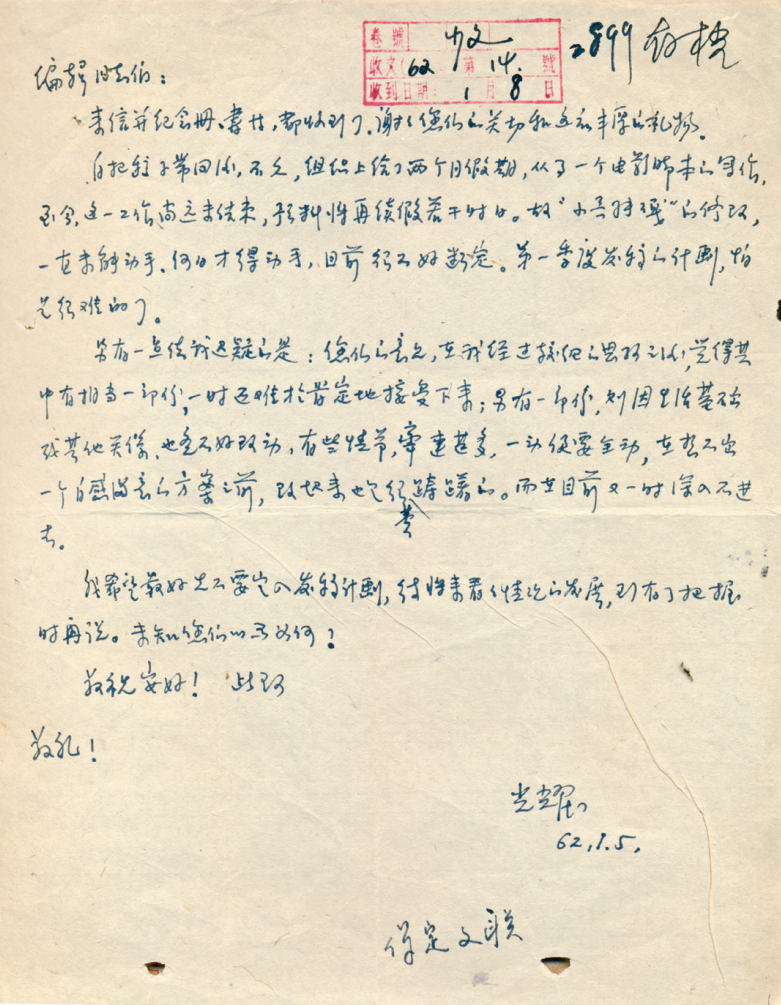 卷號 少文
收文(62 第 14 號
收到日期: 1 月 8 日
2899 存档
编辑同志们:
来信并纪念册、书廿,都收到了。谢谢您们的关切和这么丰厚的礼物。
自把稿子带回后,不久,组织上给了两个月假期,从事一个电影脚本的写作,
至今,这一工作尚远未结束,预料将再续假若干时日。故“小兵张嘎”的修改,
一直未能动手。何日才得动手,目前很不好断定。第一季度发稿的计划,怕
是很难的了。
另有一点使我迟疑的是:您们的意见,在我经过较细的思考之后,觉得其
中有相当一部份,一时还难于肯定地接受下来;另有一部份,则因生活基础
或其他关系,也是不好改动,有些情节,牵连甚多,一动便要全动,在想不出
一个自感满意的方案之前,改起来也是很费踌躇的。而在目前又一时深入不进
去。
我希望最好先不要定入发稿计划,待将来看看情况的发展,到有了把握
时再说。未知您们以为如何?
敬祝安好! 此致
敬礼!
光耀
62.1.5.
保定文联